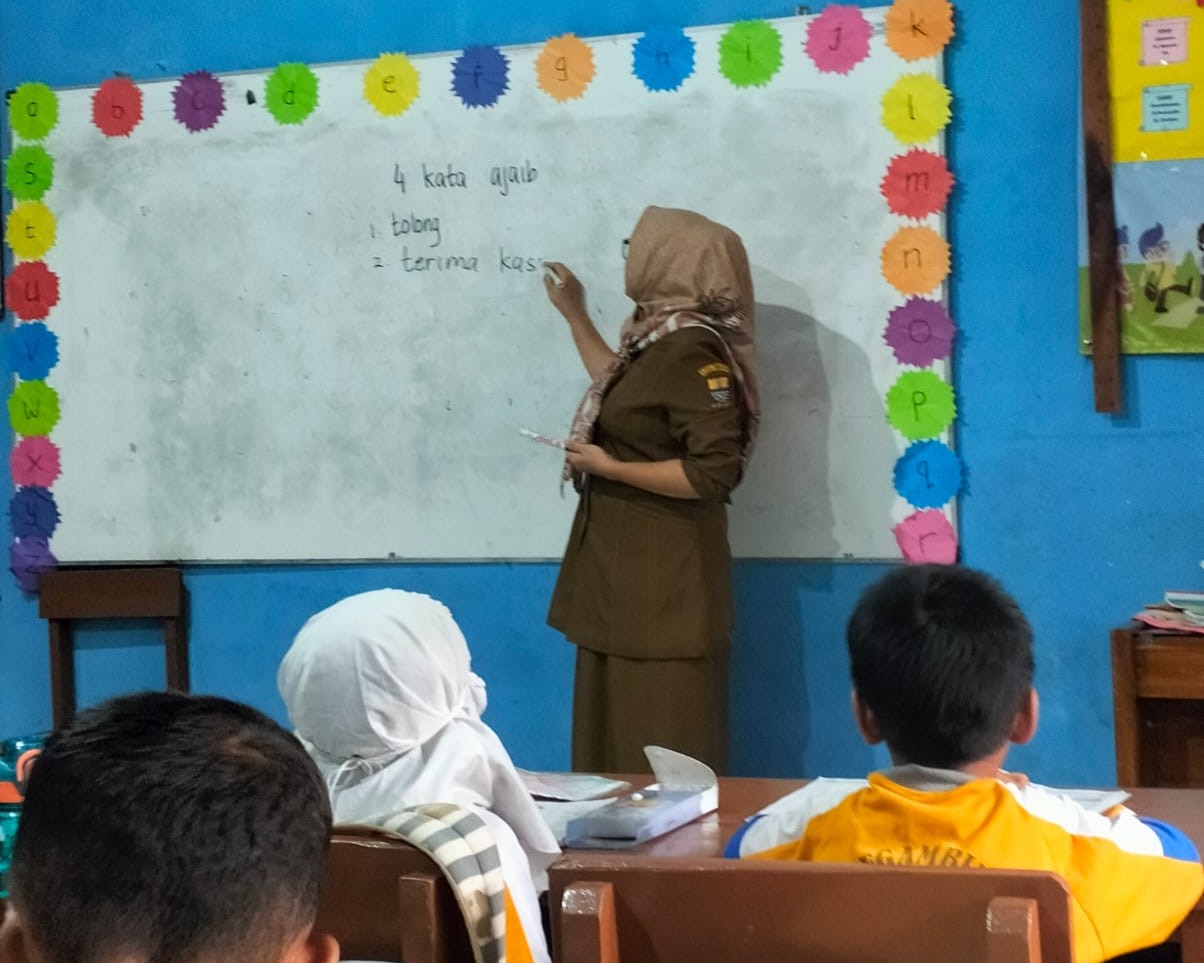 a b c d e f g h i j k
l
m
n
o
p
q
r
s
t
u
v
w
x
y
z
4 kata ajaib
1. tolong
2. terima kas